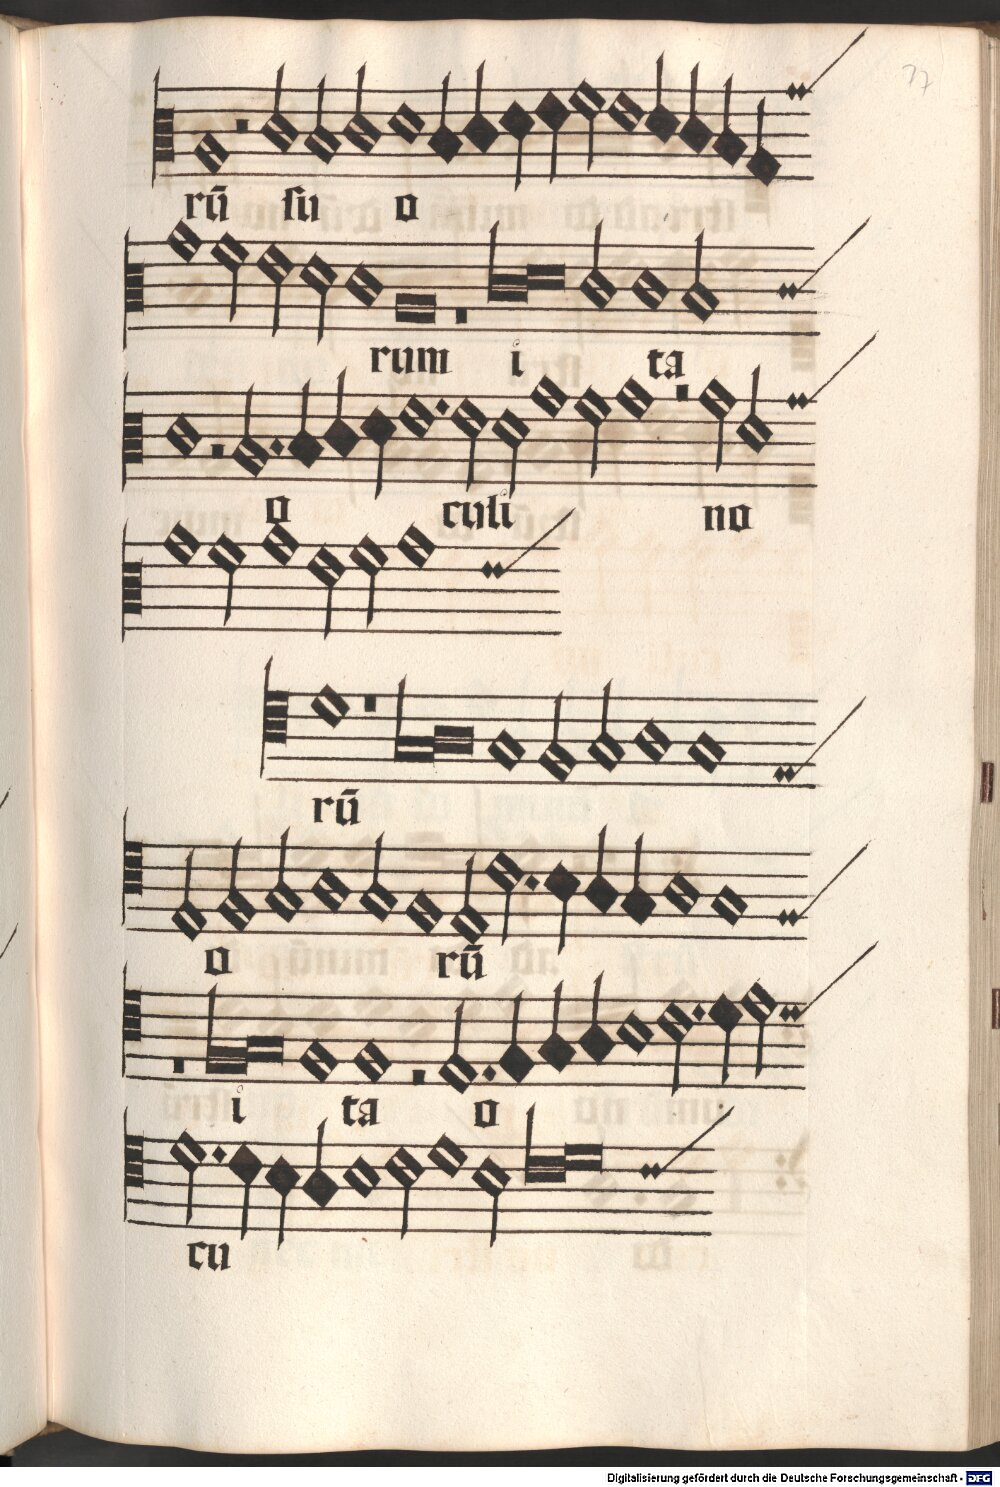 77
rū su o
rum i ta
o culi no
rū
o rū
i ta o
cu
Digitalisierung gefördert durch die Deutsche Forschungsgemeinschaft - DFG